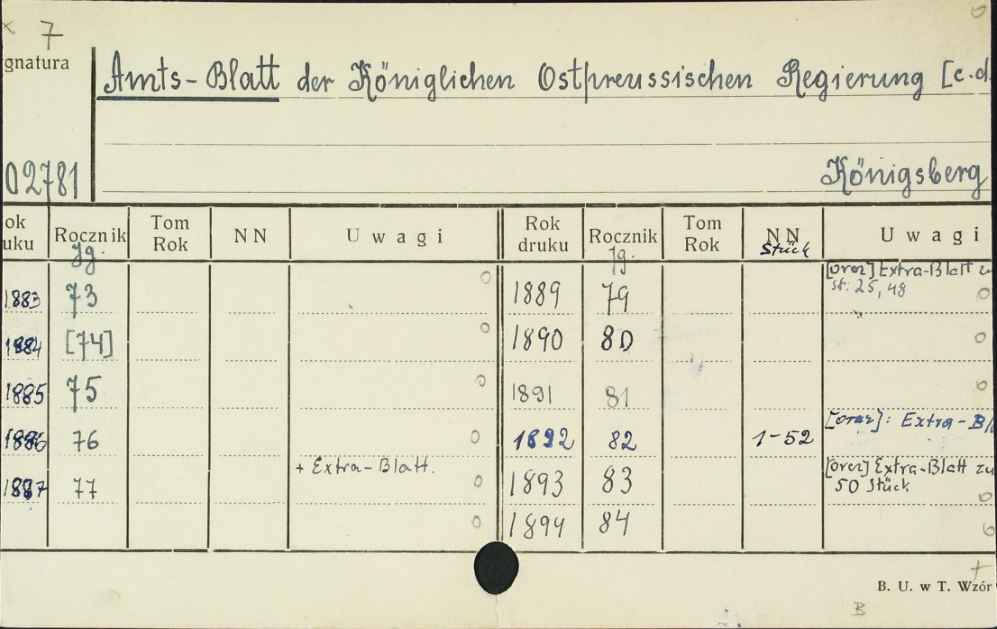 7
gnatura
Amts-Blatt der Königlichen Ostpreussischen Regierung [c.d.
02781
Königsberg
ok uku Rocznik Tom Rok NN Uwagi Rok druku Rocznik Tom Rok NN Uwagi
Jg. Jg. Stück
[oraz] Extra-Blatt zu
st. 25, 48
1883 73 1889 79
1884 [74] 1890 80
1885 75 1891 81
[oraz]: Extra-Bl
1886 76 1892 82 1-52
+ Extra-Blatt.
[oraz] Extra-Blatt zu
50 Stück
1887 77 1893 83
1894 84
B. U. w T. Wzór
B